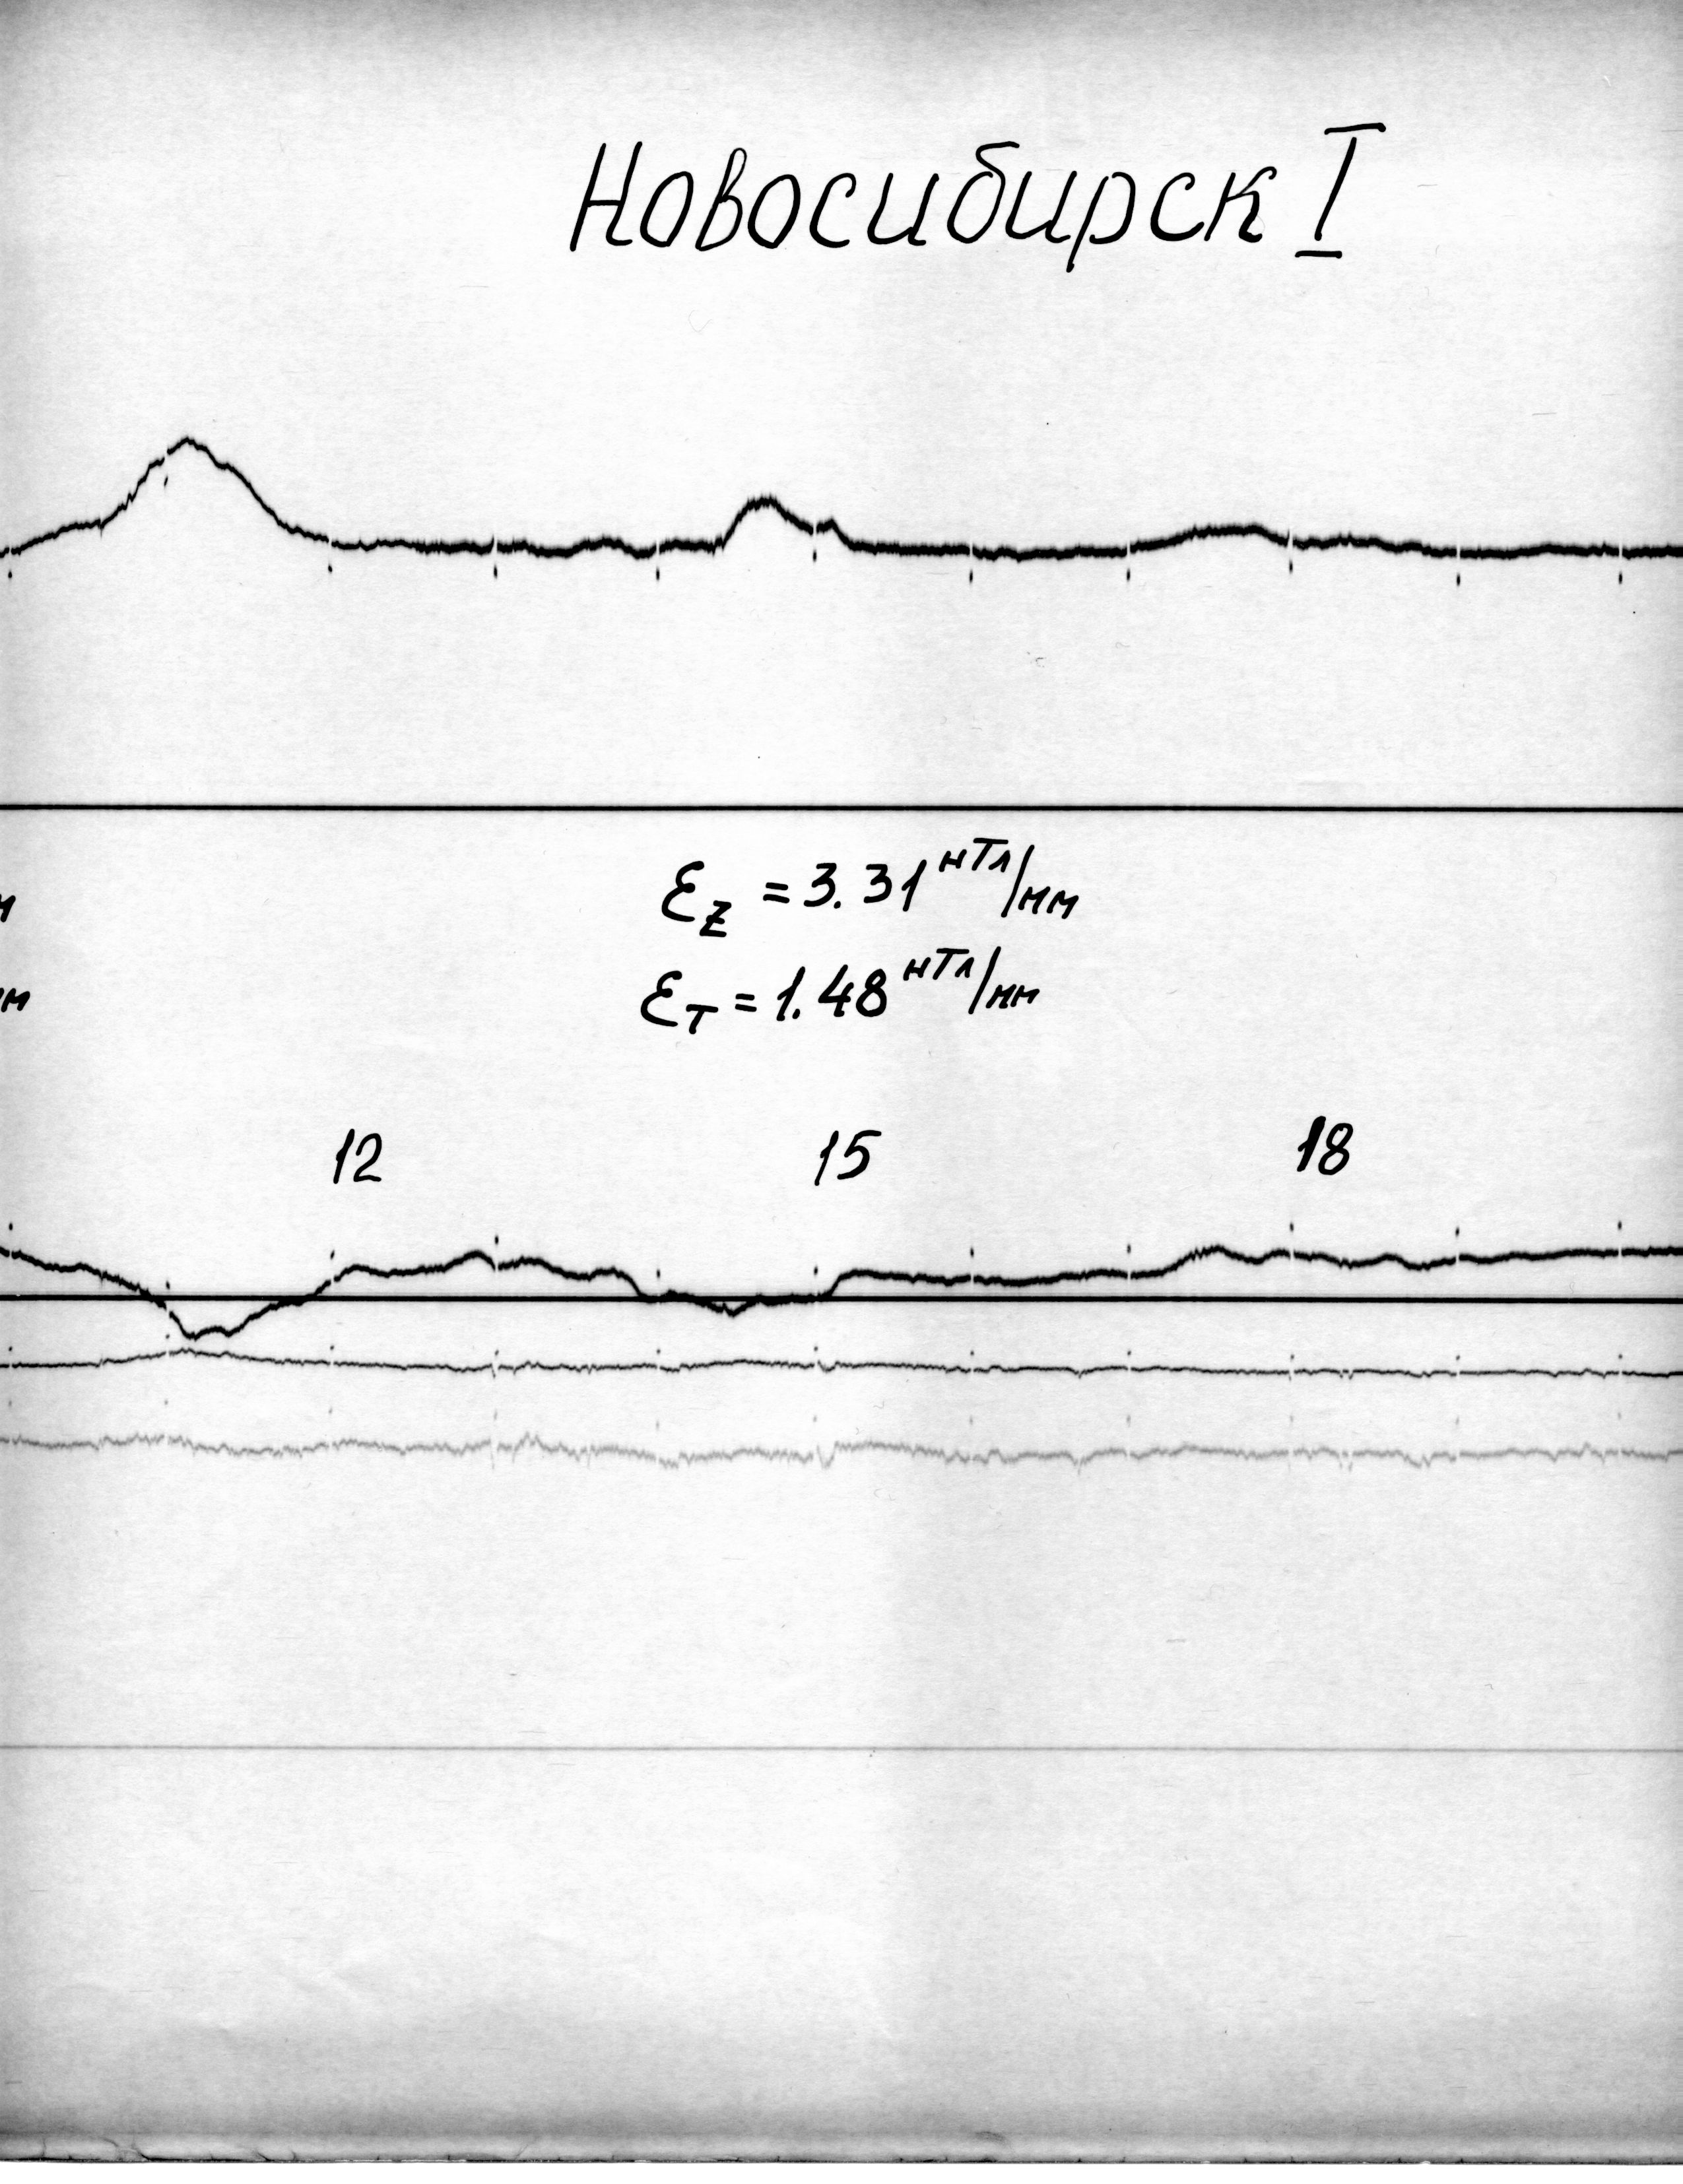 Новосибирск I
м
Ɛz = 3.31 нТл/мм
мм
Ɛт = 1.48 нТл/мм
12 15 18